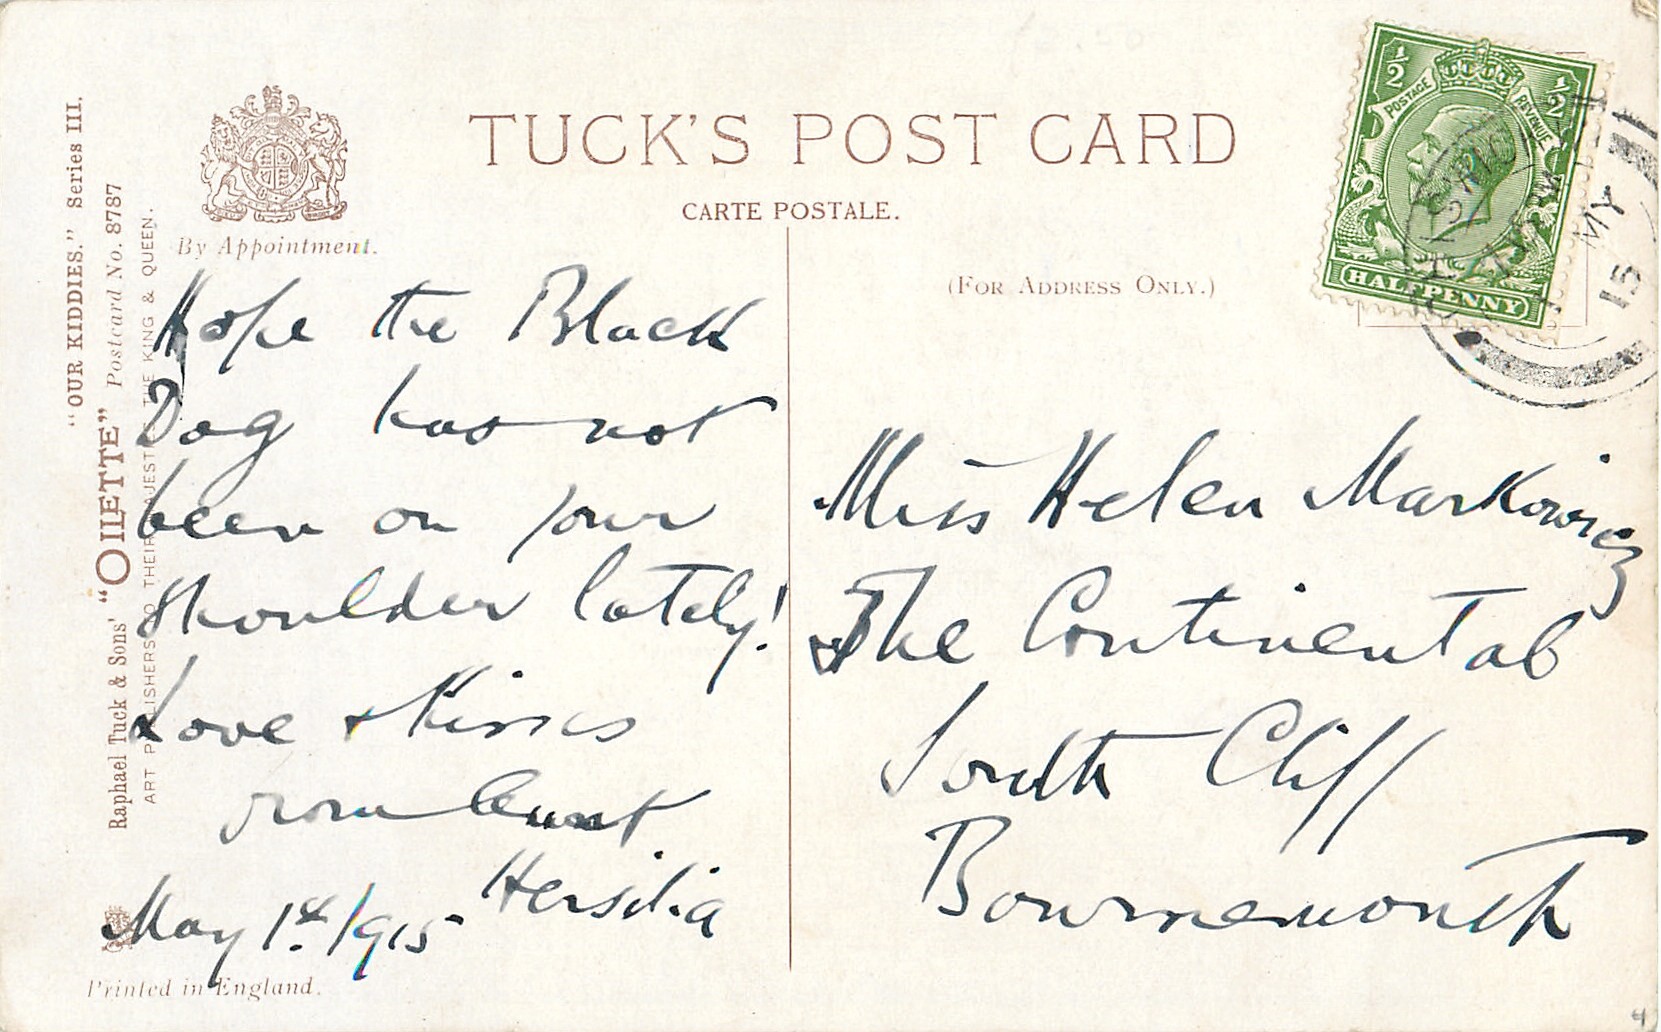 TUCK'S POST CARD
CARTE POSTALE.
By Appointment.
(FOR ADDRESS ONLY.)
"OUR KIDDIES." Series III.
Raphael Tuck & Sons' "OILETTE" Postcard No. 8787
ART PUBLISHERS TO THEIR MAJESTIES THE KING & QUEEN.
Hope the Black
Dog has not
been on your
shoulder lately!
Love & Kisses
from Aunt
Hersilia
May 1st 1915
Printed in England.
½ ½
POSTAGE REVENUE
HALFPENNY
MY
15
Miss Helen Markowicz
The Continental
South Cliff
Bournemouth
4